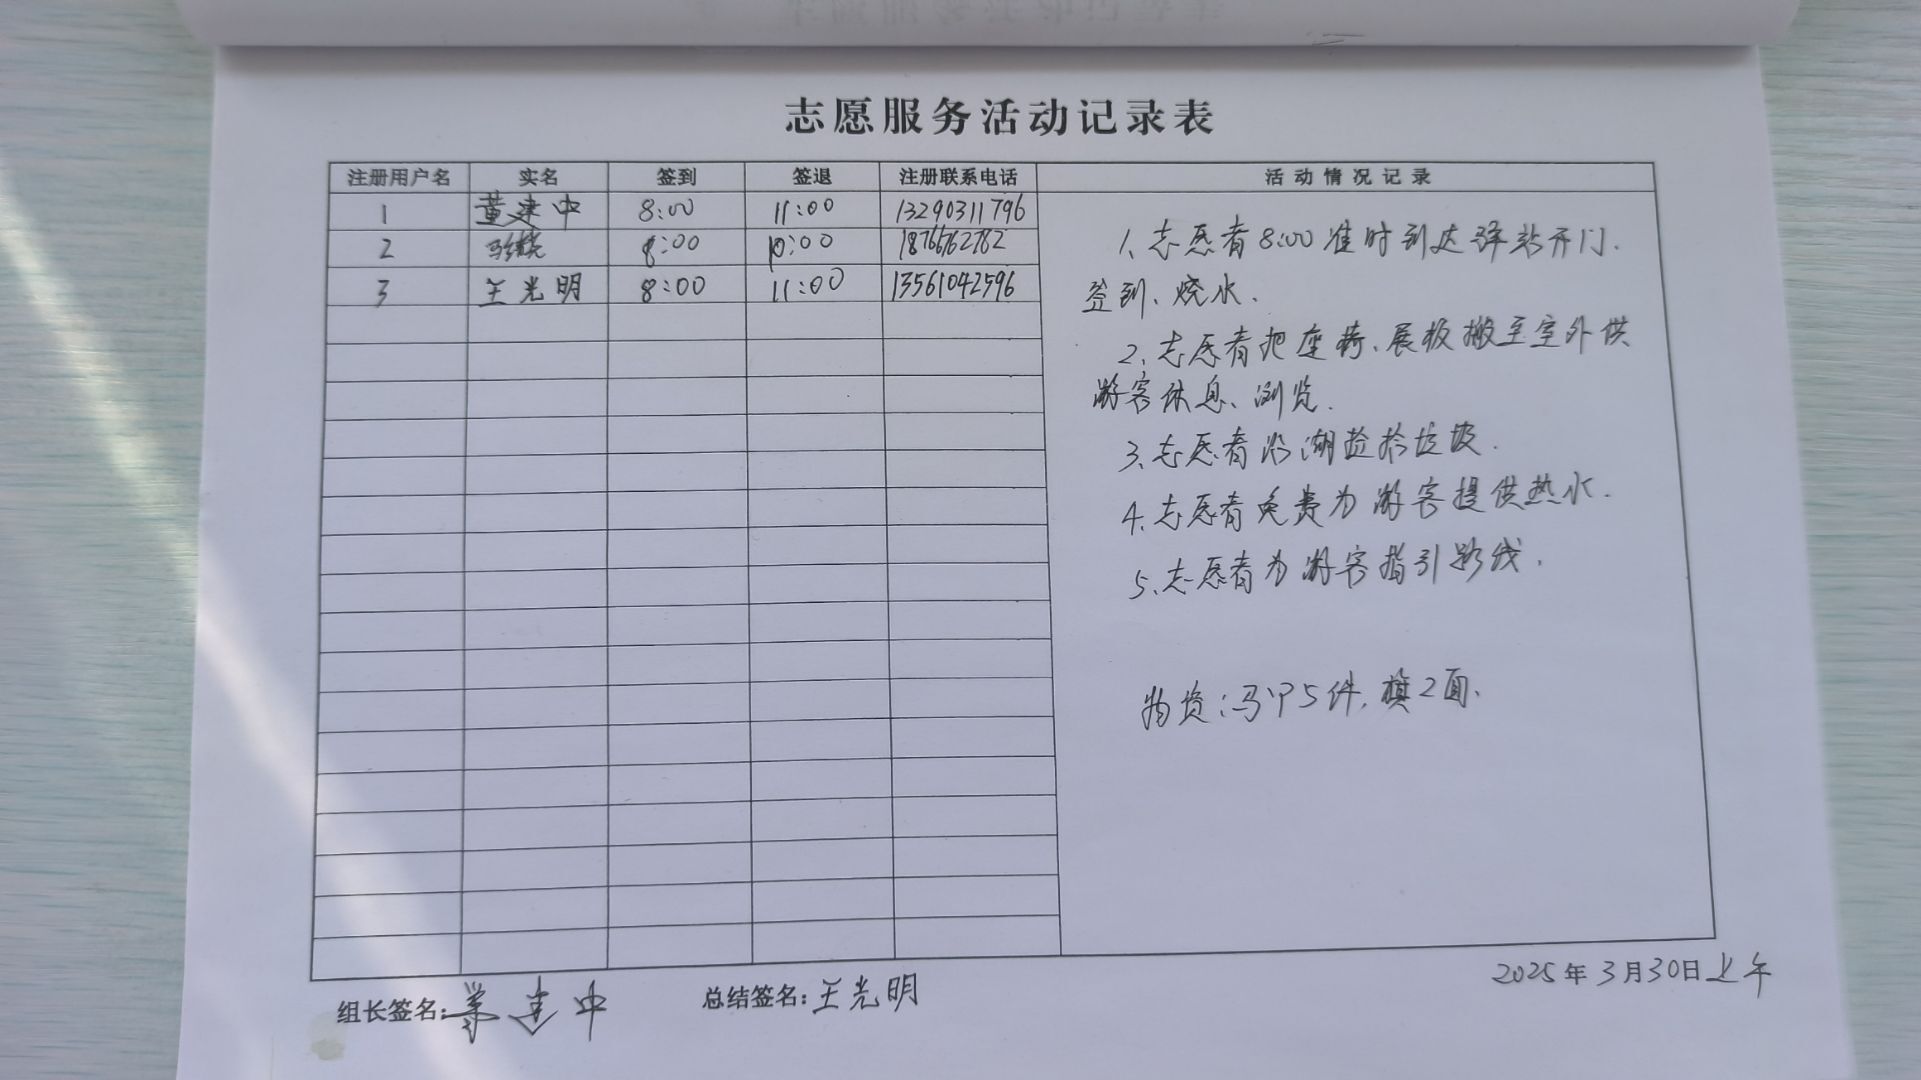 志愿服务活动记录表
注册用户名 实名 签到 签退 注册联系电话 活动情况记录
1 董建中 8:00 11:00 13290311796
2 8:00 10:00 18766762782
3 王光明 8:00 11:00 13561042596
1、志愿者8:00准时到达驿站开门、
签到、烧水.
2、志愿者把座椅、展板搬至室外供
游客休息、浏览.
3、志愿者沿湖捡拾垃圾.
4、志愿者免费为游客提供热水.
5、志愿者为游客指引路线.
物资:马甲5件,旗2面.
2025年3月30日上午
组长签名:董建中 总结签名:王光明